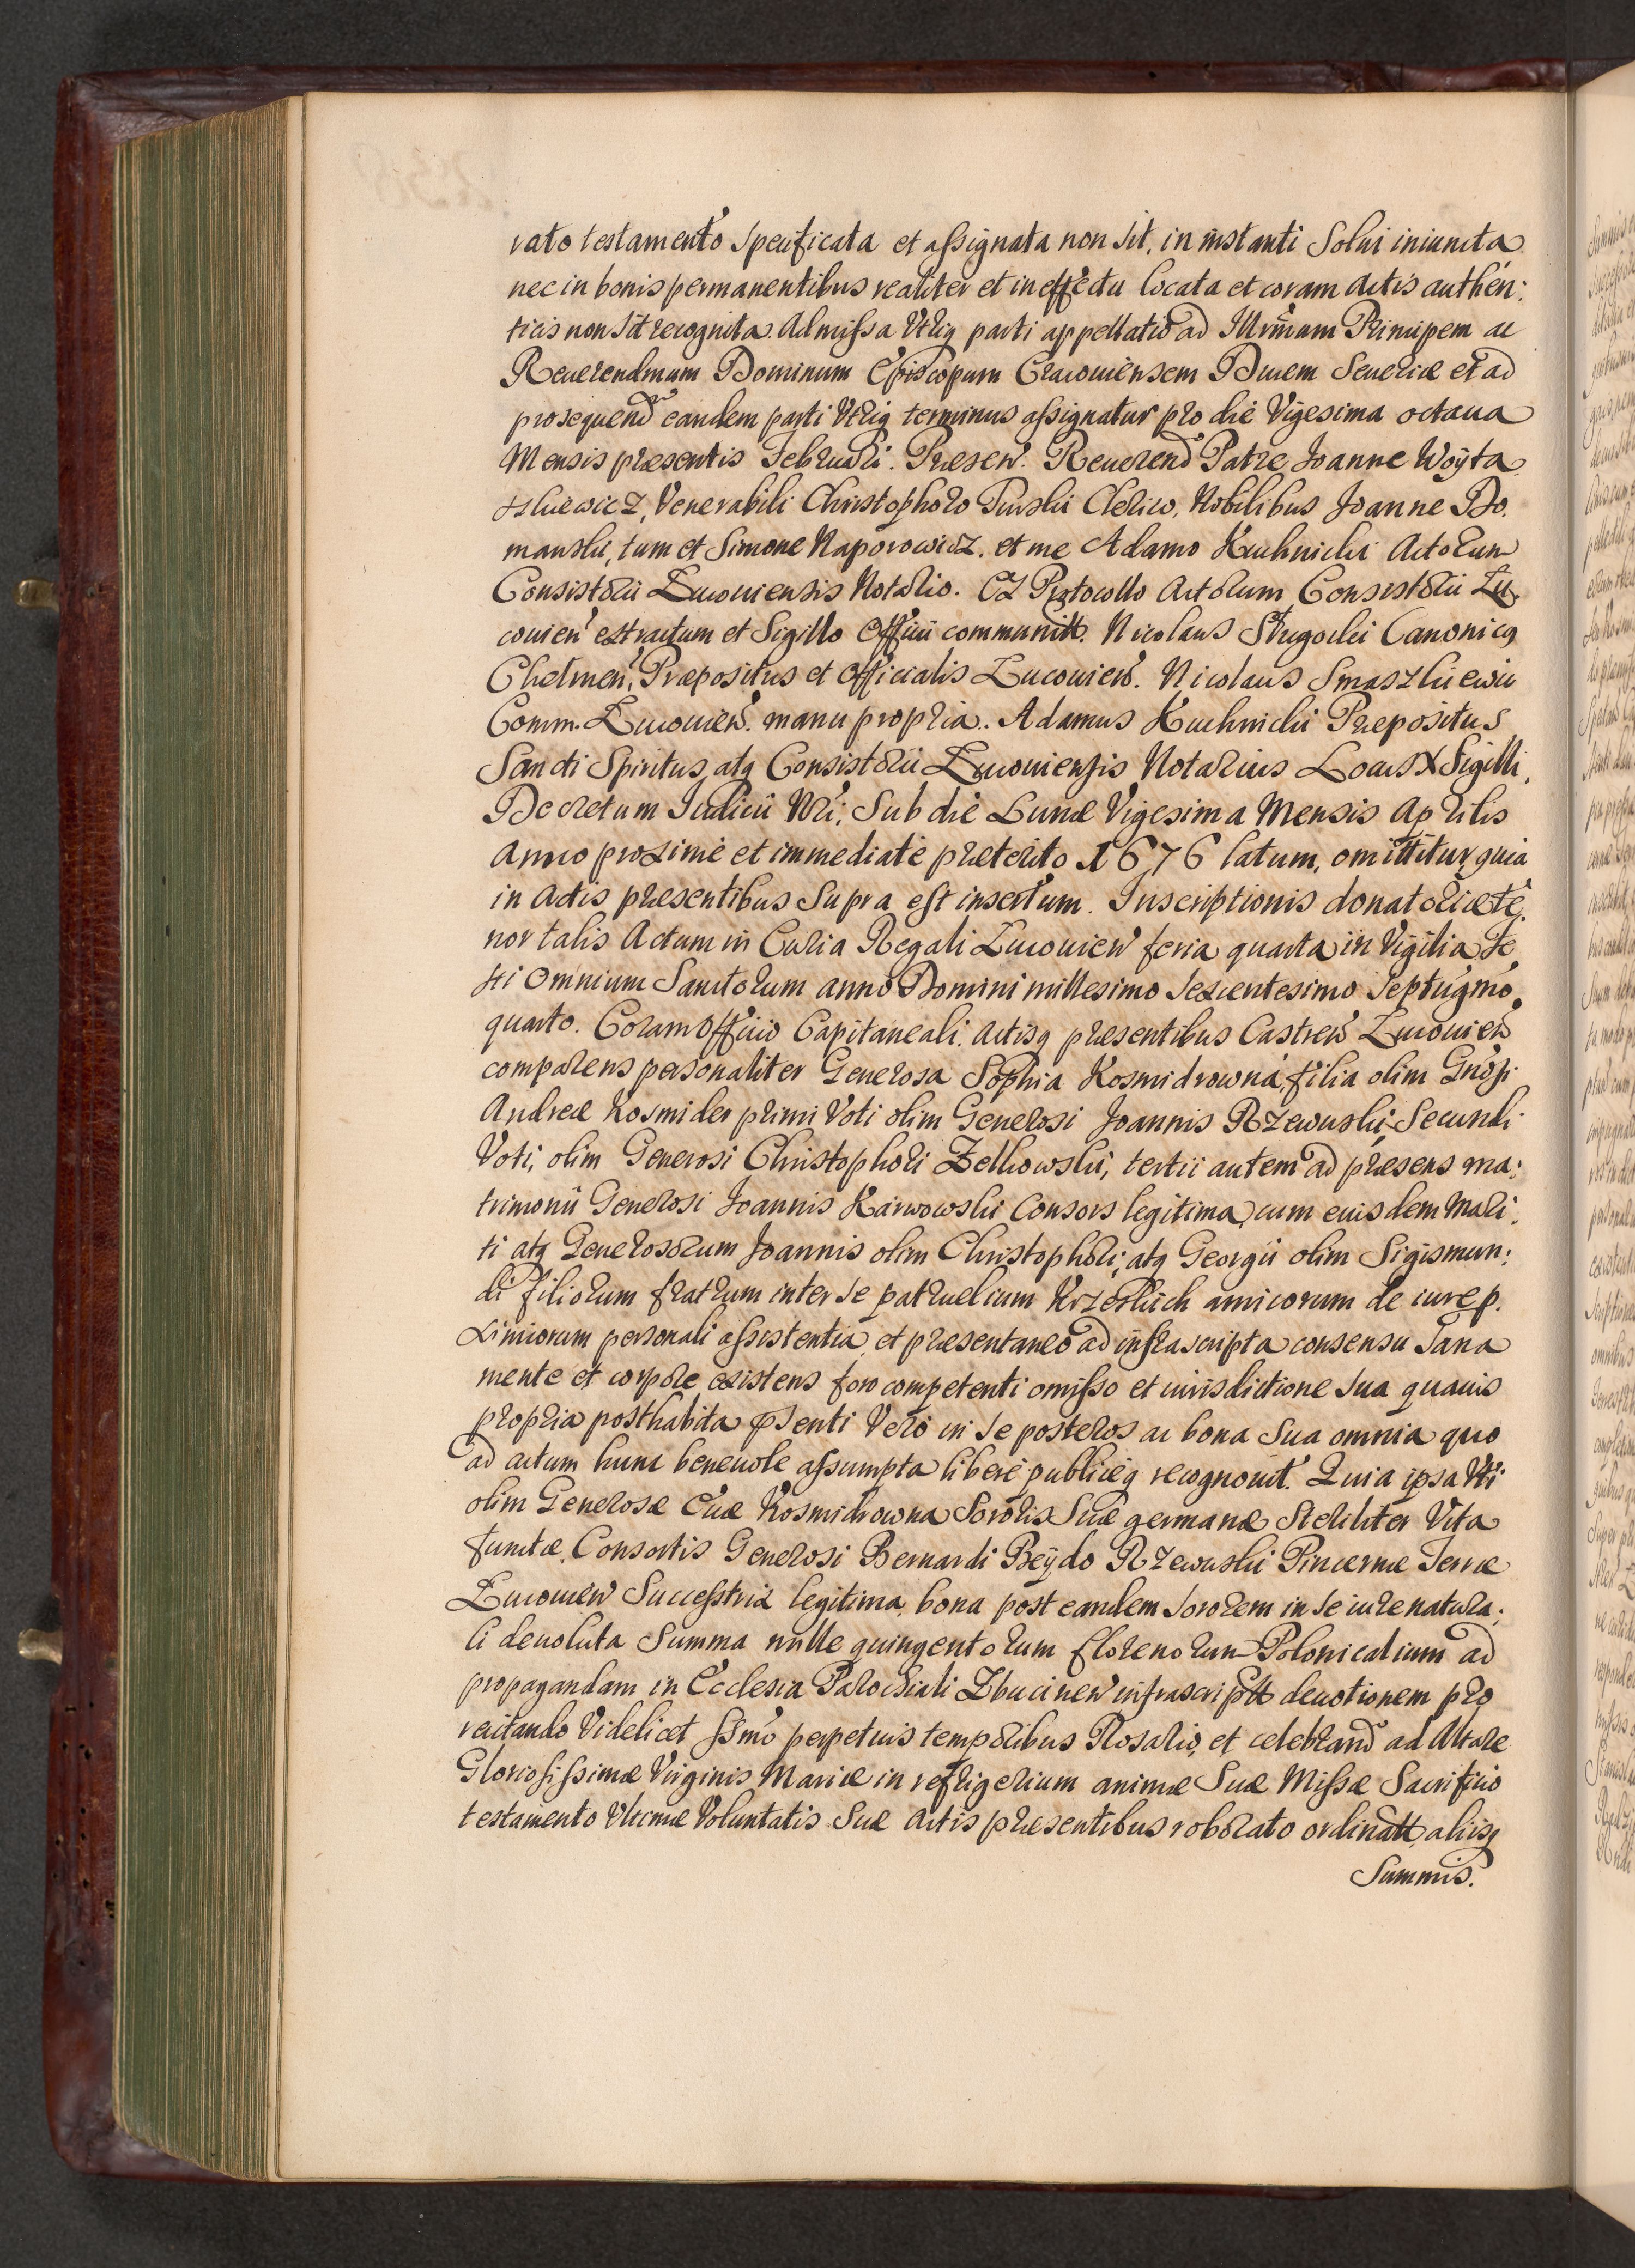 rato testamento specificata et assignata non sit, in instanti Solui iniuncta
nec in bonis permanentibus realiter et in effectu locata et coram Actis authen:
ticis non sit recognita. Admissa Vtriq parti appellatio ad Illrmum Principem ac
Reuerendmum Dominum Episcopum Cracouiensem Ducem Seueriæ et ad
prosequend eandem parti Vtriq terminus assignatur pro die Vigesima octaua
Mensis præsentis Februarii. Præsen. Reuerend Patre Joanne Woÿta
skiewicz, Venerabili Christophoro Purski Clerico, Nobilibus Joanne Do.
manski, tum et Simone Naporowicz. et me Adamo Kuchnicki Actorum
Consistorii Lucouiensis Notario. Ex Protocollo Actorum Consistorii Lu.
couien extractum et Sigillo Officii communitt. Nicolaus Strugocki Canonicq
Chelmen, Præpositus et Officialis Lucouien. Nicolaus Smaszkiewic
Comm. Lucouien. manu propria. Adamus Kuchnicki Præpositus
Sancti Spiritus, atq Consistorii Lucouiensis Notarius Locus X Sigilli,
Decretum Iudicii Nri. Sub die Lunæ Vigesima Mensis Aprilis
Anno proxime et immediate præterito 1676 latum, omittitur quia
in Actis præsentibus Supra est insertum. Inscriptionis donatoriæ te.
nor talis Actum in Curia Regali Lucouien feria quarta in Vigilia Fe
sti Omnium Sanctorum anno Domini millesimo sexcentesimo septuagmo
quarto. Coram Officio Capitaneali. Actisq præsentibus Castren Lucouien
comparens personaliter Generosa Sophia Kosmidrowna, filia olim Gnosi
Andreæ Kosmider primi Voti olim Generosi Joannis Rzewuski, Secundi
Voti, olim Generosi Christophori Zelkowski, tertii autem ad præsens ma:
trimonii Generosi Joannis Karwowski Consors legitima, cum eiusdem Mari.
ti atq Generosorum Joannis olim Christophori, atq Georgii olim Sigismun:
di filiorum fratrum inter se patruelium Krzeskich amicorum de iure p.
ximiorum personali assistentia, et præsentaneo ad infrascripta consensu Sana
mente et corpore existens foro competenti omisso et iurisdictione sua quauis
propria posthabita psenti Vero in se posteros ac bona sua omnia quo
ad actum hunc beneuole assumpta libere publiceq recognouit. Quia ipsa Vti
olim Generosæ Euæ Kosmidrowna Sororis Suæ germanæ Steriliter Vita
functæ, Consortis Generosi Bernardi Beÿdo Rzewuski Pincernæ Terræ
Lucouien Successtrix legitima, bona post eandem sororem in se iure natura;
li deuoluta Summa mille quingentorum florenorum Polonicalium ad
propagandam in Ecclesia Parochiali Zbucinen infrascriptt deuotionem pro
recitando Videlicet ssmo perpetuis temporibus Rosario, et celebrand ad Altare
Gloriosissimæ Virginis Mariæ in refrigerium animæ Suæ Missæ Sacrificio
testamento Vltimæ Voluntatis Suæ Actis præsentibus roborato ordinatt, aliisq
Summis.